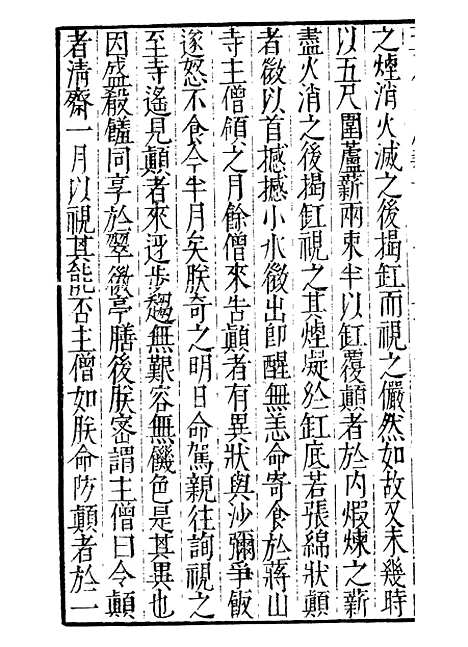 之煙消火滅之後揭缸而視之儼然如故又未幾時
以五尺圍蘆薪兩束半以缸覆顛者於內煆煉之薪
盡火消之後揭缸視之其煙凝於缸底若張綿狀顛
者微以首撼撼小水微出即醒無恙命寄食於蔣山
寺主僧領之月餘僧來告顛者有異狀與沙彌爭飯
遂怒不食今半月矣朕奇之明日命駕親往詢視之
至寺遙見顛者來迓步趨無艱容無饑色是其異也
因盛殽饈同享於翠微亭膳後朕密謂主僧曰令顛
者清齋一月以視其能否主僧如朕命防顛者於一